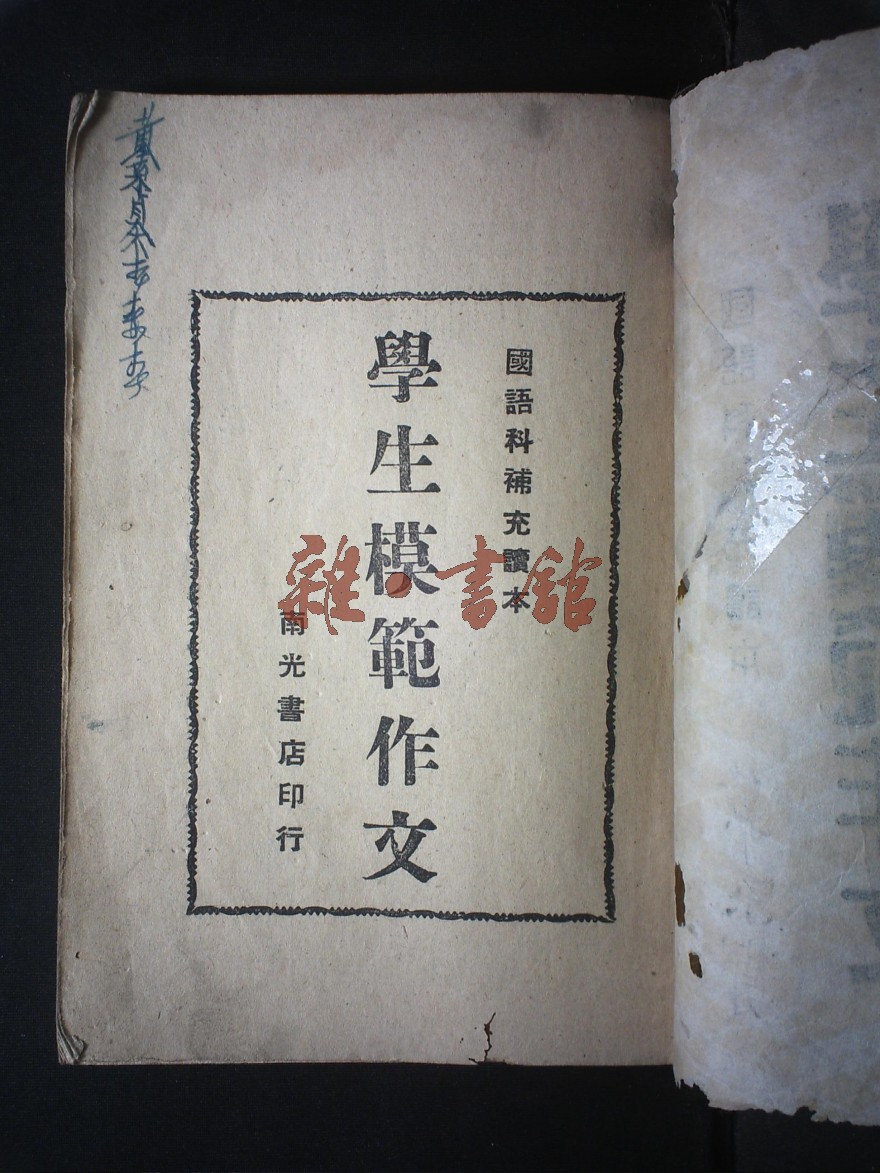 國語科補充讀本
學生模範作文
南光書店印行
雜·書館